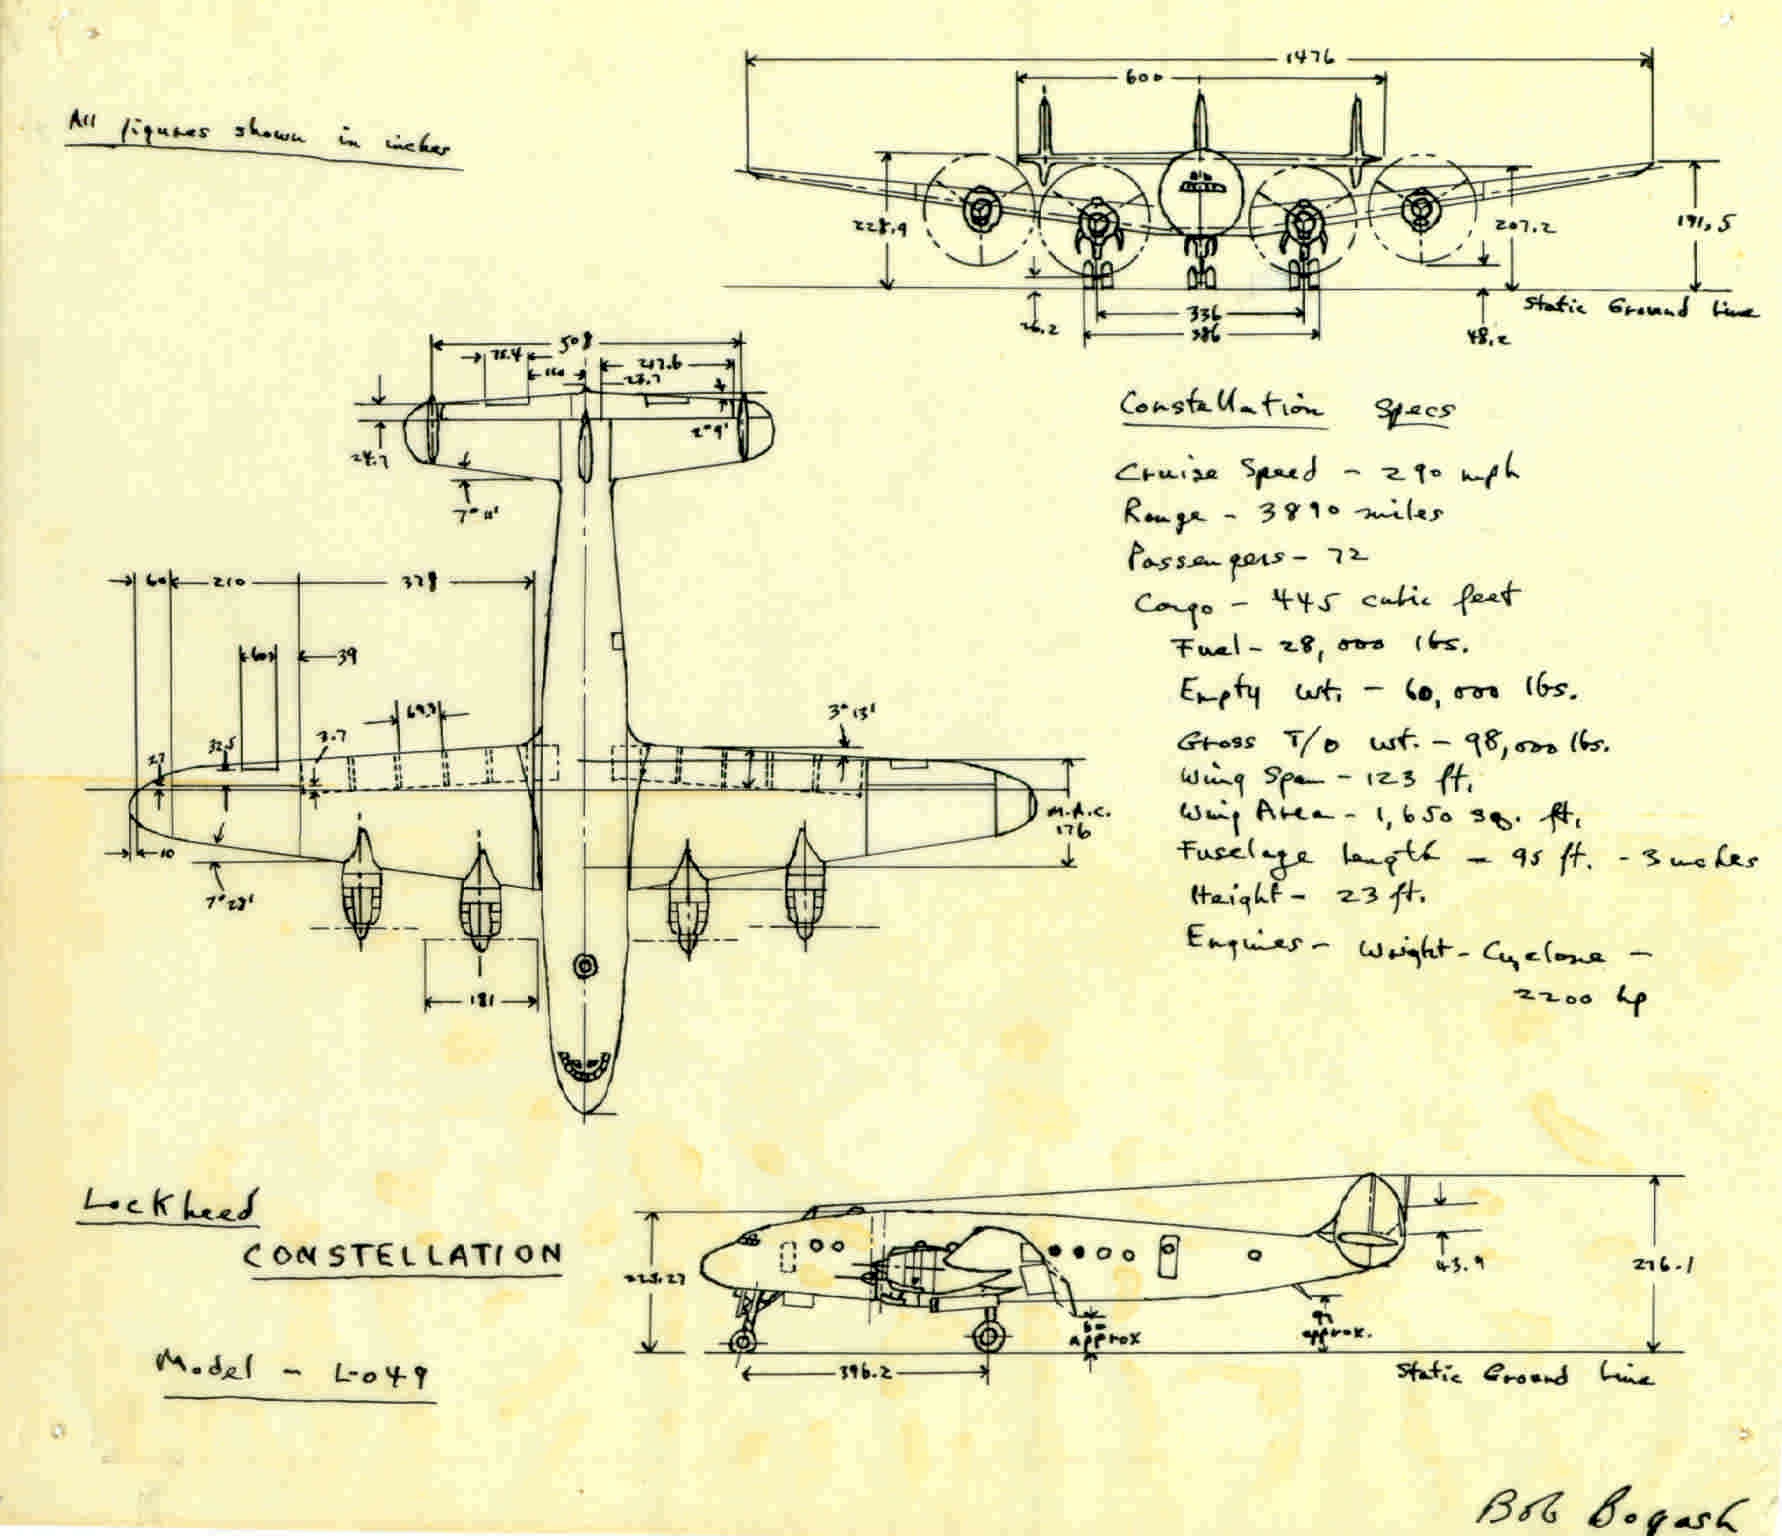 1476
600
All figures shown in inches
228.9
207.2
191.5
26.2
336
386
48.2
Static Ground Line
508
75.4
217.6
23.7
2°9'
24.7
7°11'
Constellation Specs
Cruise Speed - 290 mph
Range - 3890 miles
Passengers - 72
Cargo - 445 cubic feet
Fuel - 28,000 lbs.
Empty wt. - 60,000 lbs.
Gross T/O wt. - 98,000 lbs.
Wing Span - 123 ft.
Wing Area - 1,650 sq. ft.
Fuselage length - 95 ft. - 3 inches
Height - 23 ft.
Engines - Wright-Cyclone -
2200 hp
60 210 378
60 39
3°13'
27
32.5
3.7
M.A.C.
176
10
7°28'
181
Lockheed
CONSTELLATION
Model - L-049
43.9
276.1
60
approx
approx.
396.2
Static Ground Line
Bob Bogash